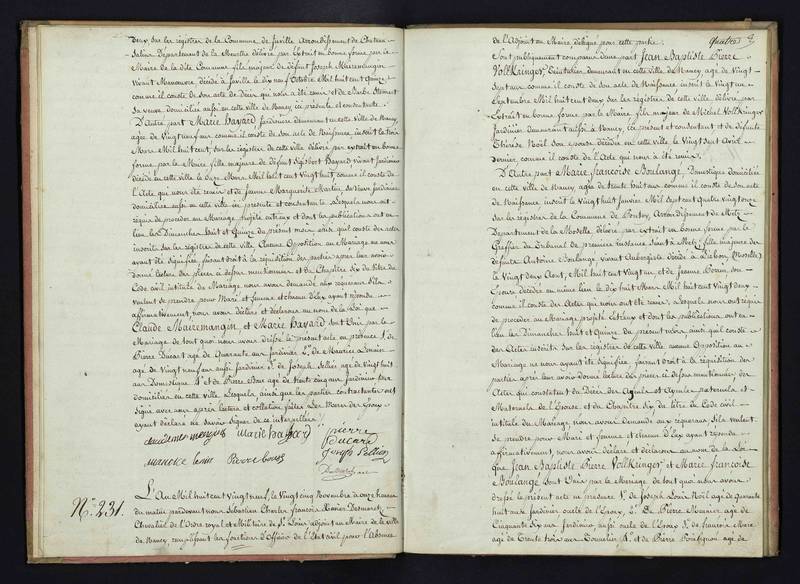 deux sur les registres de la Commune de Juville Arrondissement de Chateau
Salins Département de la Meurthe délivré par Extrait en bonne forme par le
Maire de la dite Commune fils majeur de défunt Joseph Mairemangin
vivant Manoeuvre décédé à Juville le dix neuf Octobre Mil huit cent Quinze
comme il conste de son acte de Décès qui nous a été remis et de
sa veuve domiciliée aussi en cette ville de Nancy ici présente et consentante.
D'Autre part Marie Bayard Jardinière demeurant en cette ville de Nancy,
agée de Vingt neuf ans comme il conste de son acte de Naissance inscrit le trois
Mil huit cent, sur les registres de cette ville délivré par extrait en bonne
forme par le Maire fille majeure de défunt Sigisbert Bayard vivant Jardinier
décédé en cette ville le Mars Mil huit cent Vingt huit comme il conste de
l'Acte qui nous été remis et de Jeanne Marguerite Martin, sa veuve jardinière
domiciliée aussi en cette ville ici présente et consentante. Lesquels nous ont
requis de procéder au Mariage projeté entr'eux et dont les publications ont eu
lieu les Dimanches huit et Quinze du présent mois ainsi qu'il conste des actes
inscrits sur les registres de cette ville Aucune Opposition au Mariage ne nous
ayant été signifiée, faisant droit à la réquisition des parties après leur avoir
donné lecture des pièces ci dessus mentionnées et du Chapitre six du titre du
Code civil intitulé du Mariage nous avons demandé aux requérans s'ils
veulent se prendre pour Mari et femme et chacun d'Eux ayant répondu
affirmativement nous avons déclaré et déclarons au nom de la Loi que
Claude Mairemangin et Marie Bayard Sont Unis par le
Mariage de tout quoi nous avons dressé le présent acte en présence 1.º de
Pierre Ducart agé de Quarante ans jardinier 2.º de Maurice
agé de Vingt neuf ans aussi jardinier 3.º de Joseph Pellier agé de Vingt huit
ans Domestique 4.º et de Pierre Bour agé de trente cinq ans Jardinier tous
domiciliés en cette ville Lesquels, ainsi que les parties contractantes ont
signé avec nous après lecture et collation faites Les Mères des Epoux
ayant déclaré ne savoir signer de ce interpellées.
Marie Bayard pierre
ducard
joseph Pellier
Pierre bour
N.º 231.
L'An Mil huit cent Vingt neuf, le Vingt cinq Novembre à onze heures
du matin pardevant nous Sébastien Charles François Xavier Desmarets
Chevalier de l'Ordre royal et Militaire de S.t Louis adjoint au Maire de la ville
de Nancy, remplissant les fonctions d'Officier de l'Etat civil pour l'Absence
de l'Adjoint au Maire, délégué pour cette partie.
Sont publiquement comparus d'une part Jean Baptiste Pierre
Vollkringer, demeurant en cette ville de Nancy, agé de Vingt
sept ans comme il conste de son acte de Naissance inscrit le Vingt un
Septembre Mil huit cent deux sur les registres de cette ville délivré par
Extrait en bonne forme par le Maire fils majeur de Michel Vollkringer
Jardinier demeurant aussi à Nancy, ici présent et consentant et de défunte
Thérèse Noël son épouse décédée en cette ville le Vingt sept Avril
dernier, comme il conste de l'Acte qui nous a été remis.
D'Autre part Marie françoise Boulangé, Domestique domiciliée
en cette ville de Nancy agée de trente huit ans comme il conste de son acte
de Naissance inscrit le Vingt huit Janvier Mil sept cent Quatre Vingt onze
sur les registres de la Commune de Pontoy, Arrondissement de Metz
Département de la Moselle, délivré par extrait en bonne forme par le
Greffier du Tribunal de première instance séant à Metz, fille majeure des
défunts Antoine Boulangé vivant Aubergiste décédé à (Moselle)
le Vingt deux Aout, Mil huit cent Vingt un, et de Jeanne son
Epouse décédée au même lieu le dix huit Mars Mil huit cent Vingt deux
comme il conste des Actes qui nous ont été remis. Lesquels nous ont requis
de procéder au Mariage projeté Entr'eux et dont les publications ont eu
lieu les Dimanches huit et Quinze du présent mois, ainsi qu'il conste
des Actes inscrits sur les registres de cette ville aucune Opposition au
Mariage ne nous ayant été signifiée, faisant droit à la réquisition des
parties après leur avoir donné lecture des pièces ci dessus mentionnées des
Actes qui constatent du Décès des Ayeuls et Ayeules paternels et
Maternels de l'Epouse, et du Chapitre six du titre du Code civil
intitulé du Mariage, nous avons demandé aux requérans s'ils veulent
se prendre pour Mari et femme et chacun d'Eux ayant répondu
affirmativement, nous avons déclaré et déclarons au nom de la Loi
que Jean Baptiste Pierre Vollkringer et Marie françoise
Boulangé Sont Unis par le Mariage de tout quoi nous avons
dressé le présent acte en présence 1.º de Joseph Louis Noël agé de Quarante
huit ans jardinier oncle de l'Epoux, 2.º De Pierre Meunier agé de
Cinquante Six ans Jardinier aussi oncle de l'Epoux 3.º de françois Marc
agé de Trente trois ans Tonnelier 4.º et de Pierre agé de